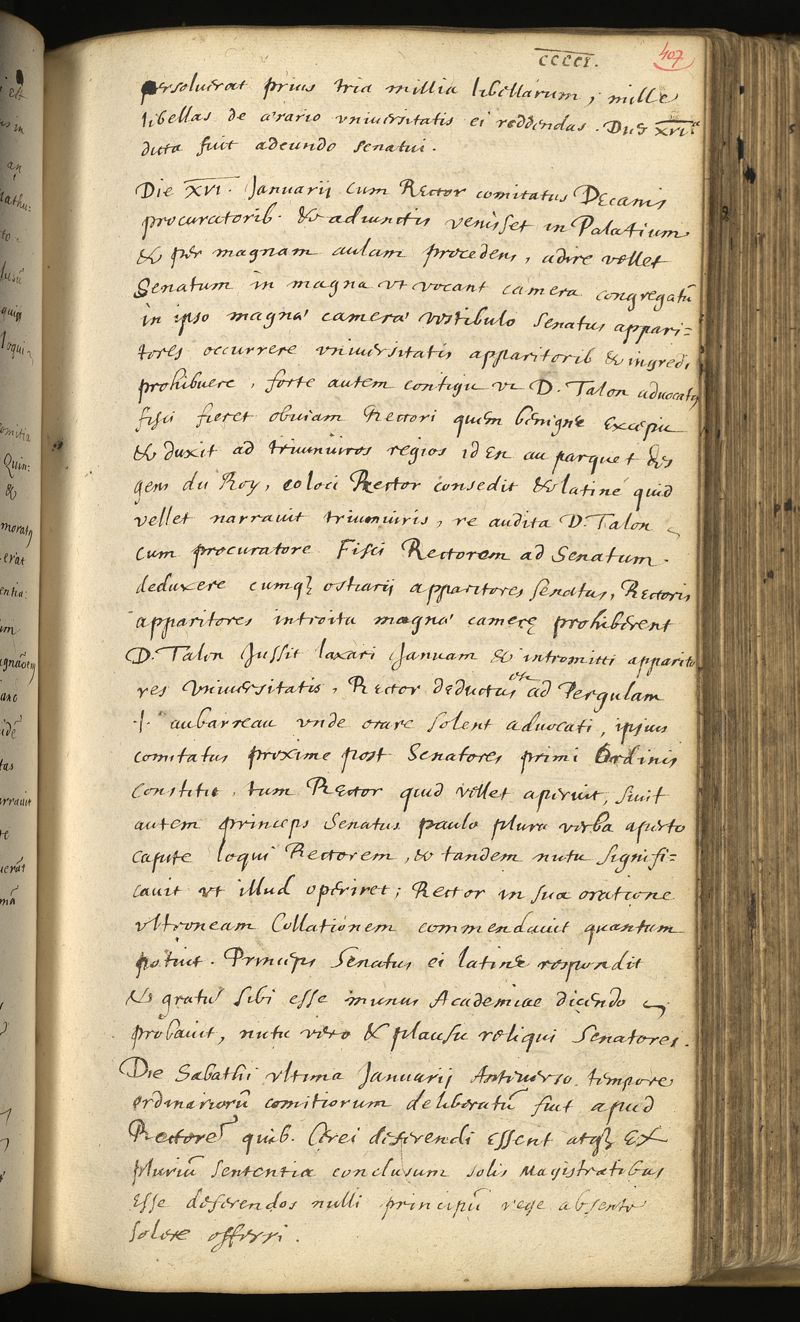 CCCCI. 407
persoluerat prius tria millia libellarum, mille
libellas de aerario vniuersitatis ei reddendas. Dies XVIa
dicta fuit adeundo senatui.
Die XVI. Januarij cum Rector comitatus Decanis
procuratorib. & adiunctis venisset in Palatium
& per magnam aulam procedens, adire vellet
Senatum in magna vt vocant camera congregatū
in ipso magnae camerae vestibulo Senatus appari-
tores occurrere vniuersitatis apparitorib & ingredi
prohibuere, forte autem contigit vt D. Talon aduocatus
fisci fieret obuiam Rectori quem benigne excepit
& duxit ad triumuiros regios id en au parquet des
gens du Roy, eo loci Rector consedit & latine quid
vellet narrauit triumuiris, re audita D. Talon
cum procuratore Fisci Rectorem ad Senatum
deduxere cumqȝ ostiarij apparitores senatus, Rectoris
apparitores introitu magnae camerę prohiberent
D. Talon jussit laxari Januam & intromitti apparito
res vniuersitatis, Rector deductus ad Pergulam
.i. au barreau vnde orare solent aduocati, ipsius
comitatus proxime post Senatores primi Ordinis
constitit, tum Rector quid vellet aperuit, siuit
autem princeps Senatus paulo plura verba aperto
capite loqui Rectorem, & tandem nutu signifi-
cauit vt illud operiret; Rector in sua oratione
vltroneam Collationem commendauit quantum
potuit. Princeps Senatus ei latine respondit
& gratū sibi esse munus Academiae dicendo
probauit, nutu vero & plausu reliqui Senatores.
Die Sabathi vltima Januarij Antiuerso tempore
ordinariorū comitiorum deliberatū fuit apud
Rectorē quib. Cerei deferendi essent atqȝ ex
pluriū sententia conclusum solis Magistratibus
esse deferendos nulli principū rege absente
solere offerri.